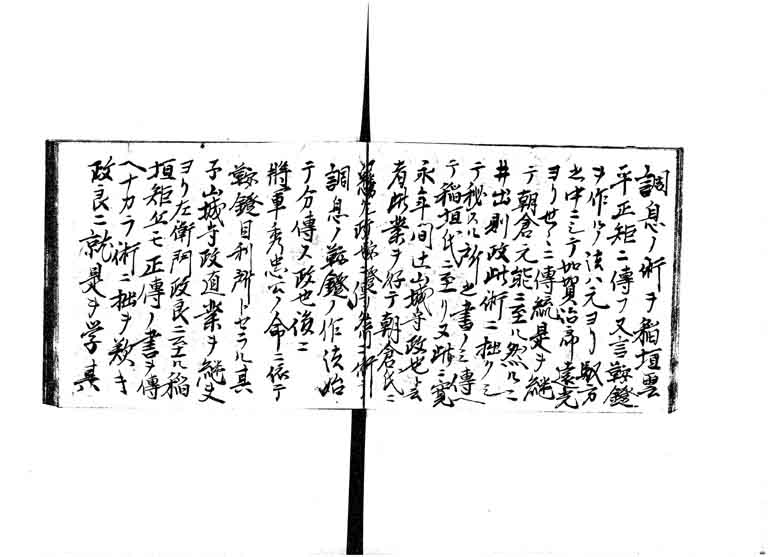 調息ノ術ヲ稲垣雲
平正矩ニ傳フ又言鞍鐙
ヲ作ルノ法ハ元ヨリ馭方
之中ニシテ加賀治郎遠光
ヨリ世々ニ傳統是ヲ継
テ朝倉元能ニ至ル然ルニ
井出則政此術ニ拙クシ
テ秘スル所之書ノミ傳ヘ
テ稲垣氏ニ至リ又時ニ寛
永年間辻山城守政也去
者此業ヲ好テ朝倉氏ニ
調息ノ鞍鐙ノ作法始
テ分傳ス政也後ニ
將軍秀忠公ノ命ニ依テ
鞍鐙目利所トセラル其
子山城守政直業ヲ継又
ヨリ左衛門政良ニ至ル稲
垣矩公モ正傳ノ書ヲ傳
ヘナカラ術ニ拙ヲ歎キ
政良ニ就是ヲ学其